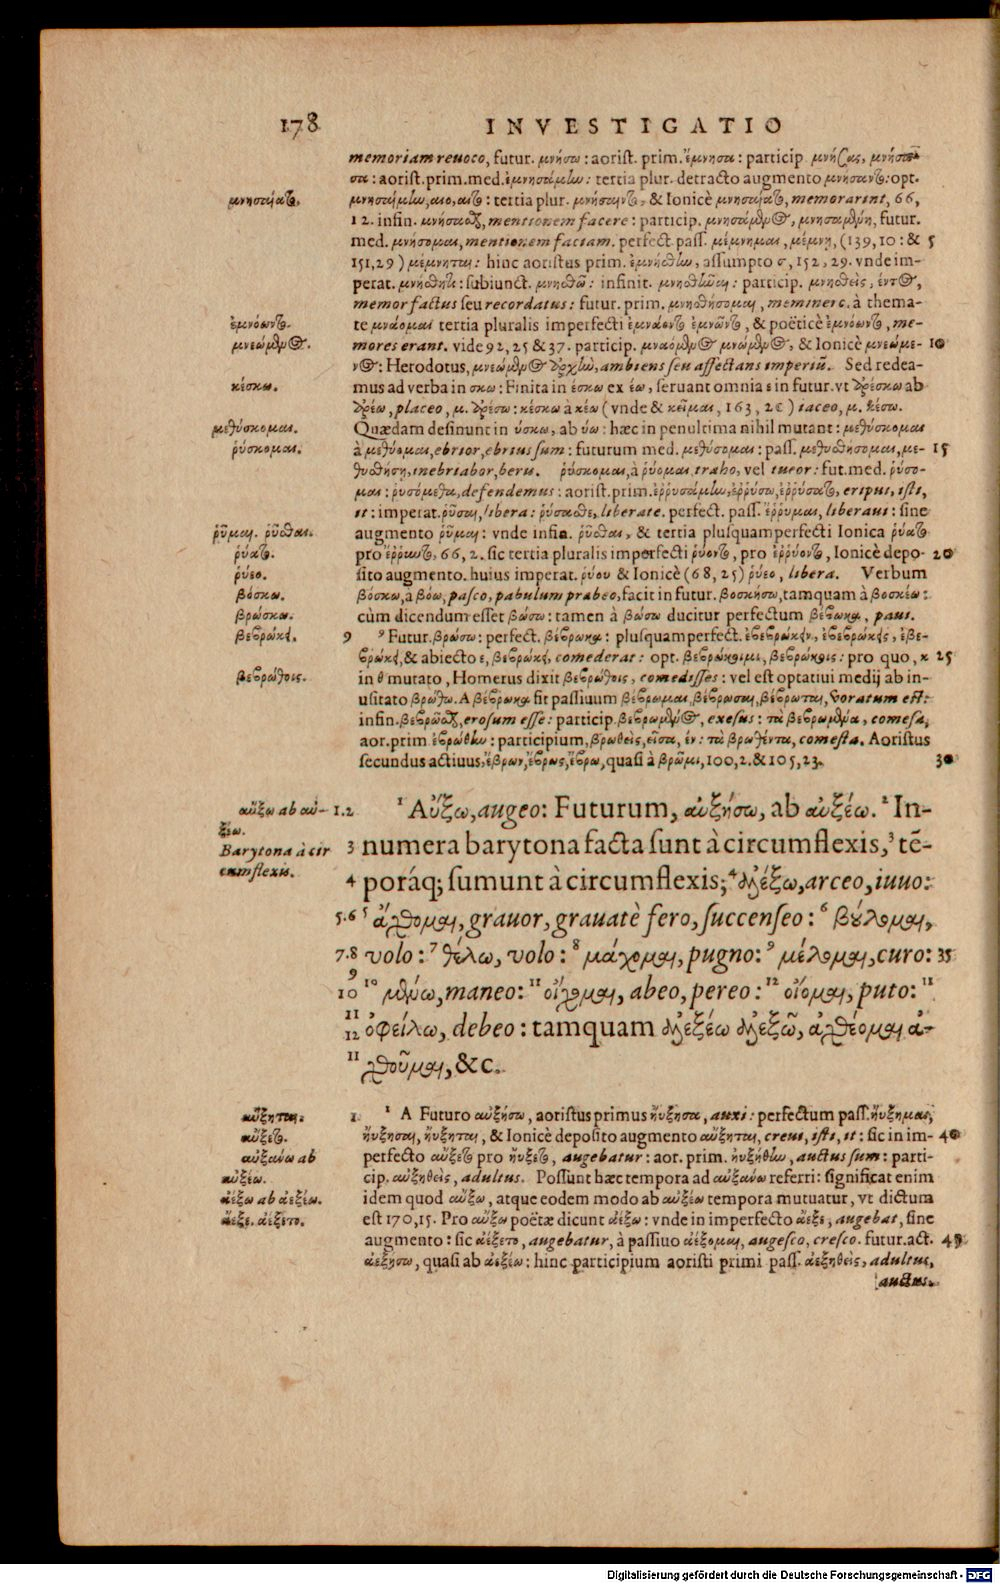 178 INVESTIGATIO
memoriam reuoco, futur. μνήσω: aorist. prim. ἔμνησα: particip. μνήσας, μνήσα-
σα: aorist. prim. med. ἐμνησάμην: tertia plur. detracto augmento μνήσαντο: opt.
μνησαίατο.
μνησαίμην, αιο, αιτο: tertia plur. μνήσαιντο, & Ionicè μνησαίατο, memorarint, 66,
12. infin. μνήσασθαι, mentionem facere: particip. μνησάμενος, μνησαμένη, futur.
med. μνήσομαι, mentionem faciam. perfect. pass. μέμνημαι, μέμνῃ, (139, 10: & 5
151, 29) μέμνηται: hinc aoristus prim. ἐμνήσθην, assumpto σ, 152, 29. vnde im-
perat. μνήσθητι: subiunct. μνησθῶ: infinit. μνησθῆναι: particip. μνησθεὶς, έντος,
memor factus seu recordatus: futur. prim. μνησθήσομαι, meminero. à thema-
ἐμνόωντο.
te μνάομαι tertia pluralis imperfecti ἐμνάοντο ἐμνῶντο, & poëticè ἐμνόωντο, me-
μνεώμενος.
mores erant. vide 92, 25 & 37. particip. μναόμενος μνώμενος, & Ionicè μνεώμε- 10
νος: Herodotus, μνεώμενος ἀρχὴν, ambiens seu affectans imperiū. Sed redea-
κέσκω.
mus ad verba in σκω: Finita in έσκω ex έω, seruant omnia ε in futur. vt ἀρέσκω ab
ἀρέω, placeo, μ. ἀρέσω: κέσκω à κέω (vnde & κεῖμαι, 163, 20) iaceo, μ. κέσω.
μεθύσκομαι.
Quædam desinunt in ύσκω, ab ύω: hæc in penultima nihil mutant: μεθύσκομαι
ῥύσκομαι.
à μεθύομαι, ebrior, ebrius sum: futurum med. μεθύσομαι: pass. μεθυσθήσομαι, με- 15
θυσθήσῃ, inebriabor, beris. ῥύσκομαι, à ῥύομαι, traho, vel tueor: fut. med. ῥύσο-
μαι: ῥυσόμεθα, defendemus: aorist. prim. ἐῤῥυσάμην, ἐῤῥύσω, ἐῤῥύσατο, eripui, isti,
it: imperat. ῥῦσαι, libera: ῥύσασθε, liberate. perfect. pass. ἔῤῥυμαι, liberaui: sine
ῥῦμαι. ῥῦσθαι.
augmento ῥῦμαι: vnde infin. ῥῦσθαι, & tertia plusquamperfecti Ionica ῥύατο
ῥύατο.
pro ἔῤῥυντο, 66, 2. sic tertia pluralis imperfecti ῥύοντο, pro ἐῤῥύοντο, Ionicè depo- 20
ῥύεο.
sito augmento. huius imperat. ῥύου & Ionicè (68, 25) ῥύεο, libera. Verbum
βόσκω.
βόσκω, à βόω, pasco, pabulum præbeo, facit in futur. βοσκήσω, tamquam à βοσκέω:
βρώσκω.
cùm dicendum esset βώσω: tamen à βώσω ducitur perfectum βέβωκα, paui.
βεβρώκει.
9 ⁹ Futur. βρώσω: perfect. βέβρωκα: plusquamperfect. ἐβεβρώκειν, ἐβεβρώκεις, ἐβε-
βρώκει, & abiecto ε, βεβρώκει, comederat: opt. βεβρώκοιμι, βεβρώκοις: pro quo, κ 25
βεβρώθοις.
in θ mutato, Homerus dixit βεβρώθοις, comedisses: vel est optatiui medij ab in-
usitato βρώθω. A βέβρωκα fit passiuum βέβρωμαι, βέβρωσαι, βέβρωται, voratum est:
infin. βεβρῶσθαι, erosum esse: particip. βεβρωμένος, exesus: τὰ βεβρωμένα, comesa,
aor. prim. ἐβρώθην: participium, βρωθεὶς, εῖσα, έν: τὰ βρωθέντα, comesta. Aoristus
secundus actiuus, ἔβρων, ἔβρως, ἔβρω, quasi à βρῶμι, 100, 2. & 105, 23. 30
αὔξω ab αὐ-
ξέω.
1.2 ¹ Αὔξω, augeo: Futurum, αὐξήσω, ab αὐξέω. ² In-
Barytona à cir
cumflexis.
3 numera barytona facta sunt à circumflexis, ³ tē-
4 poráq; sumunt à circumflexis; ⁴ ἀλέξω, arceo, iuuo:
5.6 ⁵ ἄχθομαι, grauor, grauatè fero, succenseo: ⁶ βούλομαι,
7.8 volo: ⁷ θέλω, volo: ⁸ μάχομαι, pugno: ⁹ μέλομαι, curo: 35
9
10 ¹⁰ μένω, maneo: ¹¹ οἴχομαι, abeo, pereo: ¹² οἴομαι, puto: ¹¹
11
12 ὀφείλω, debeo: tamquam ἀλεξέω ἀλεξῶ, ἀχθέομαι ἀ-
11 χθοῦμαι, &c.
αὔξηται.
1. ¹ A Futuro αὐξήσω, aoristus primus ηὔξησα, auxi: perfectum pass. ηὔξημαι,
αὔξετο.
ηὔξησαι, ηὔξηται, & Ionicè deposito augmento αὔξηται, creui, isti, it: sic in im- 40
αὐξάνω ab
αὐξέω.
perfecto αὔξετο pro ηὔξετο, augebatur: aor. prim. ηὐξήθην, auctus sum: parti-
cip. αὐξηθεὶς, adultus. Possunt hæc tempora ad αὐξάνω referri: significat enim
ἀέξω ab ἀεξέω.
idem quod αὔξω, atque eodem modo ab αὐξέω tempora mutuatur, vt dictum
ἄεξε. ἀέξετο.
est 170, 15. Pro αὔξω poëtæ dicunt ἀέξω: vnde in imperfecto ἄεξε, augebat, sine
augmento: sic ἀέξετο, augebatur, à passiuo ἀέξομαι, augesco, cresco. futur. act. 45
ἀεξήσω, quasi ab ἀεξέω: hinc participium aoristi primi pass. ἀεξηθεὶς, adultus,
auctus.
Digitalisierung gefördert durch die Deutsche Forschungsgemeinschaft - DFG